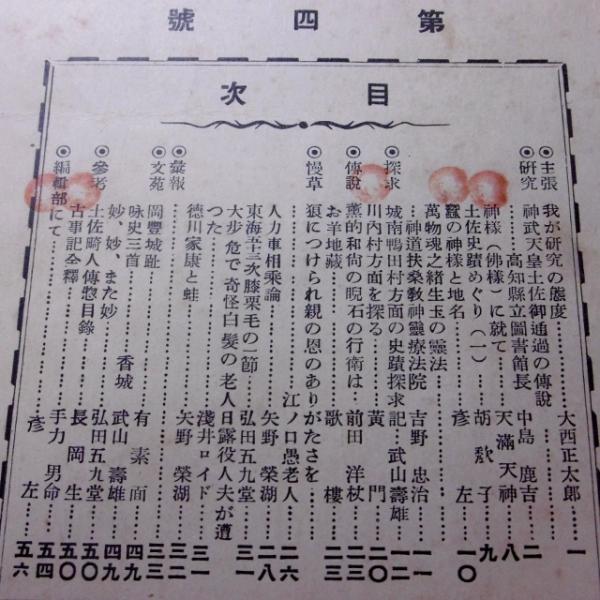 第四號
目次
◉主張 我が研究の態度 大西正太郎 一
◉研究 神武天皇土佐御通過の傳說
高知縣立圖書館長 中島鹿吉 二
神樣(佛樣)に就て 天滿天神 八
土佐史蹟めぐり(一) 胡歎子 九
蠶の神樣と地名 彥左 一〇
萬物魂之緒生玉の靈法
神道扶桑敎神靈療法院 吉野忠治 一一
◉探求 城南鴨田村方面の史蹟探求記 武山壽雄 一二
川內村方面を探る 黃門 二〇
◉傳說 薰的和尙の睨石の行衛は 前田洋杖 二三
お羊地藏 歌樓
◉慢草 狼につけられ親の恩のありがたさを
江ノ口愚老人 二六
人力車相乘論 矢野榮湖 二八
東海平三次膝栗毛の一節 弘田五九堂 三一
大步危で奇怪白髮の老人日露役人夫が遭
つた 淺井ロイド 三一
德川家康と蛙 矢野榮湖 三二
◉彙報 三三
◉文苑 岡豐城趾 有素面 四九
咏史三首 武山壽雄 四九
妙、妙、また妙 香城
◉參考 土佐畸人傳惣目錄 弘田五九堂 五〇
古事記全釋 長岡生 五〇
◉編輯部にて 手力男命 五四
彥左 五六